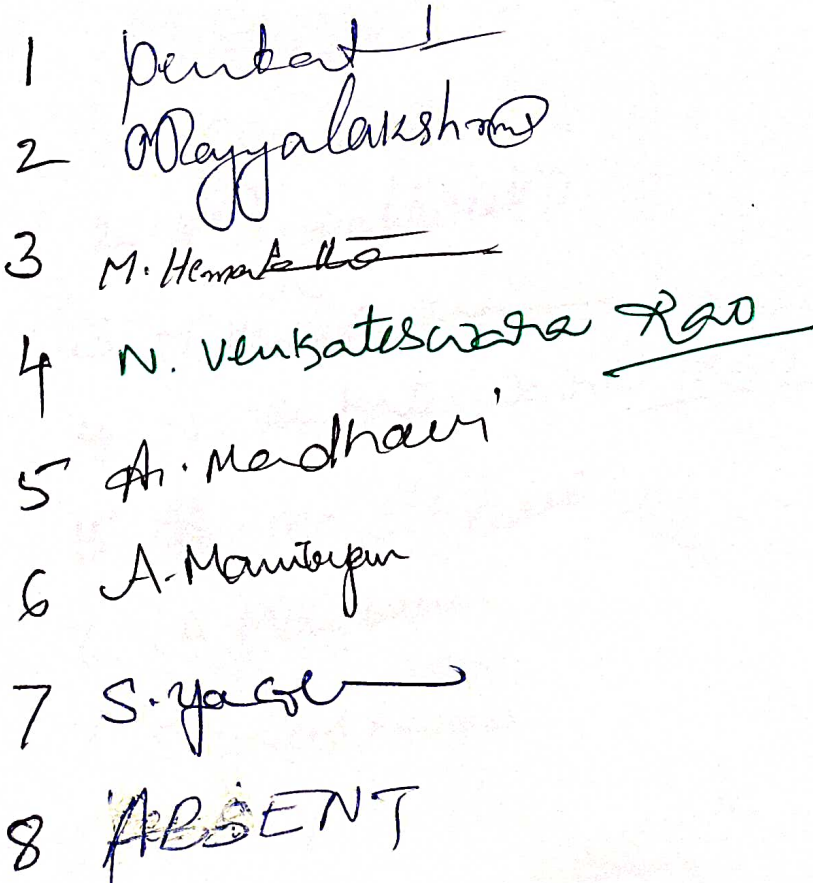 1 Penkat
2 Rayyalakshmi
3 M. Hemalatha
4 N. Venkateswara Rao
5 A. Madhavi
6 A.
7 S.
8 ABSENT